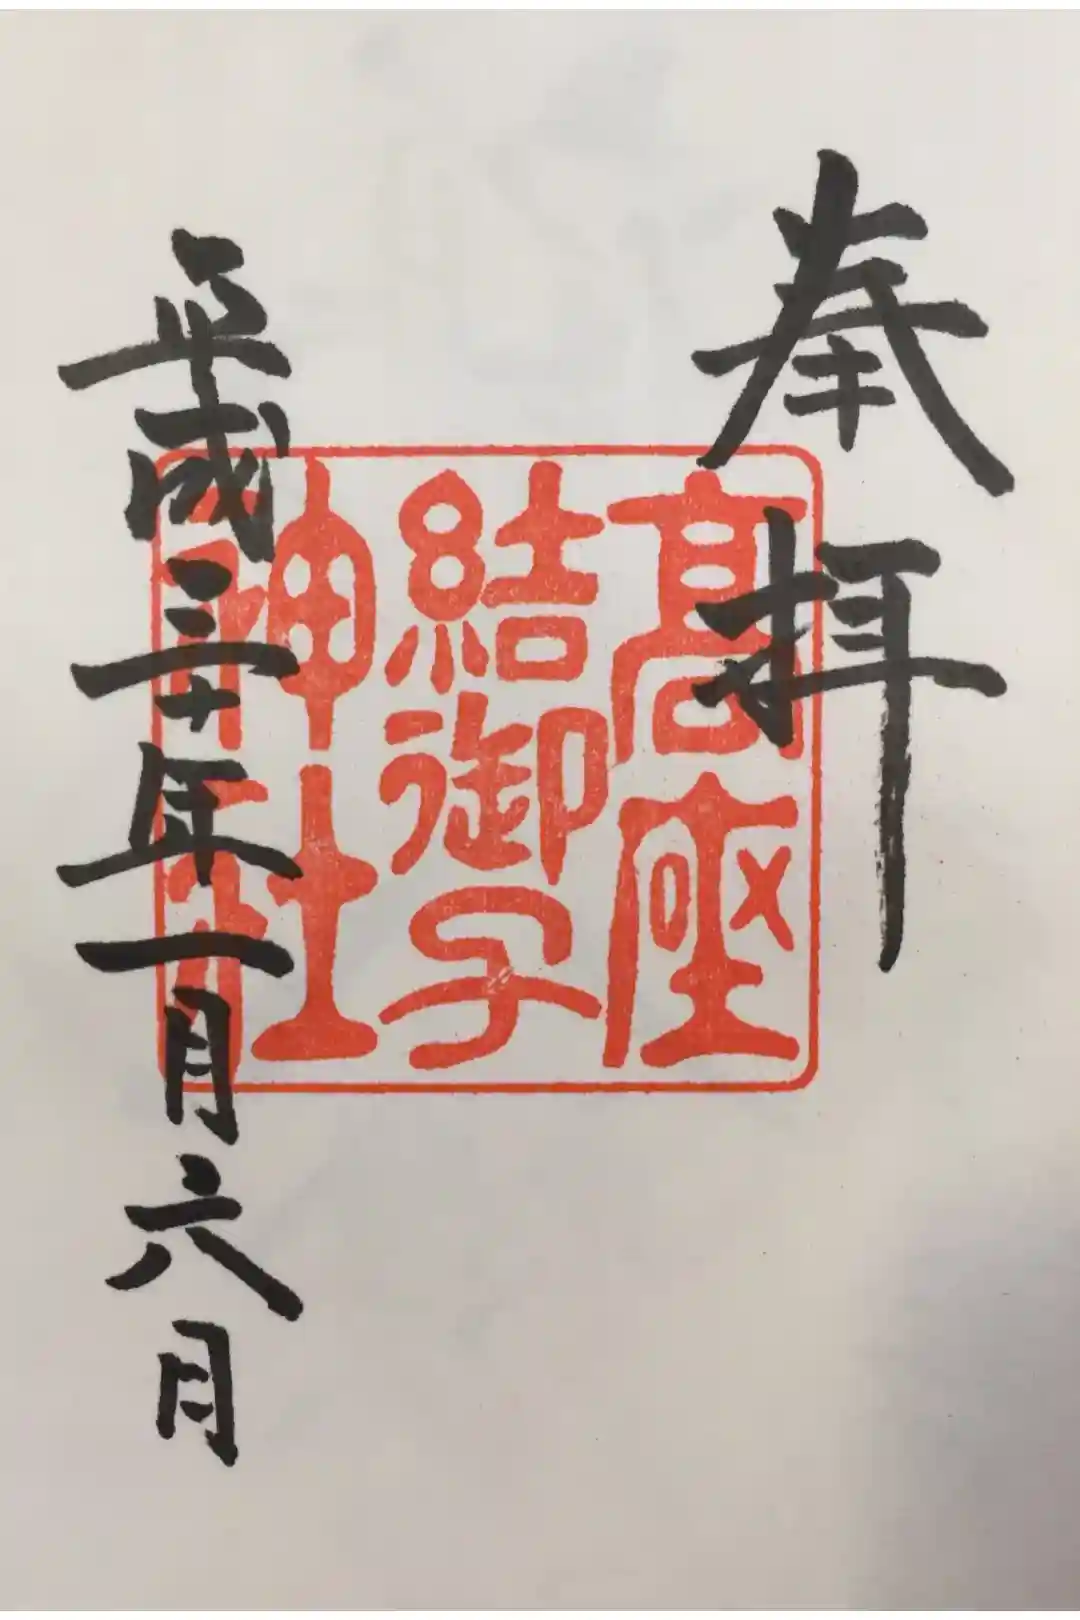 奉拝
高座
結御子
神社
平成三十年一月六日